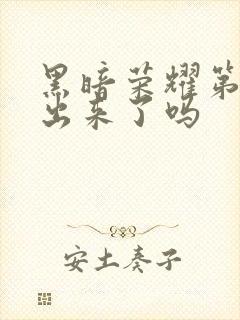 黑暗荣耀第
出来了吗
安土奏子